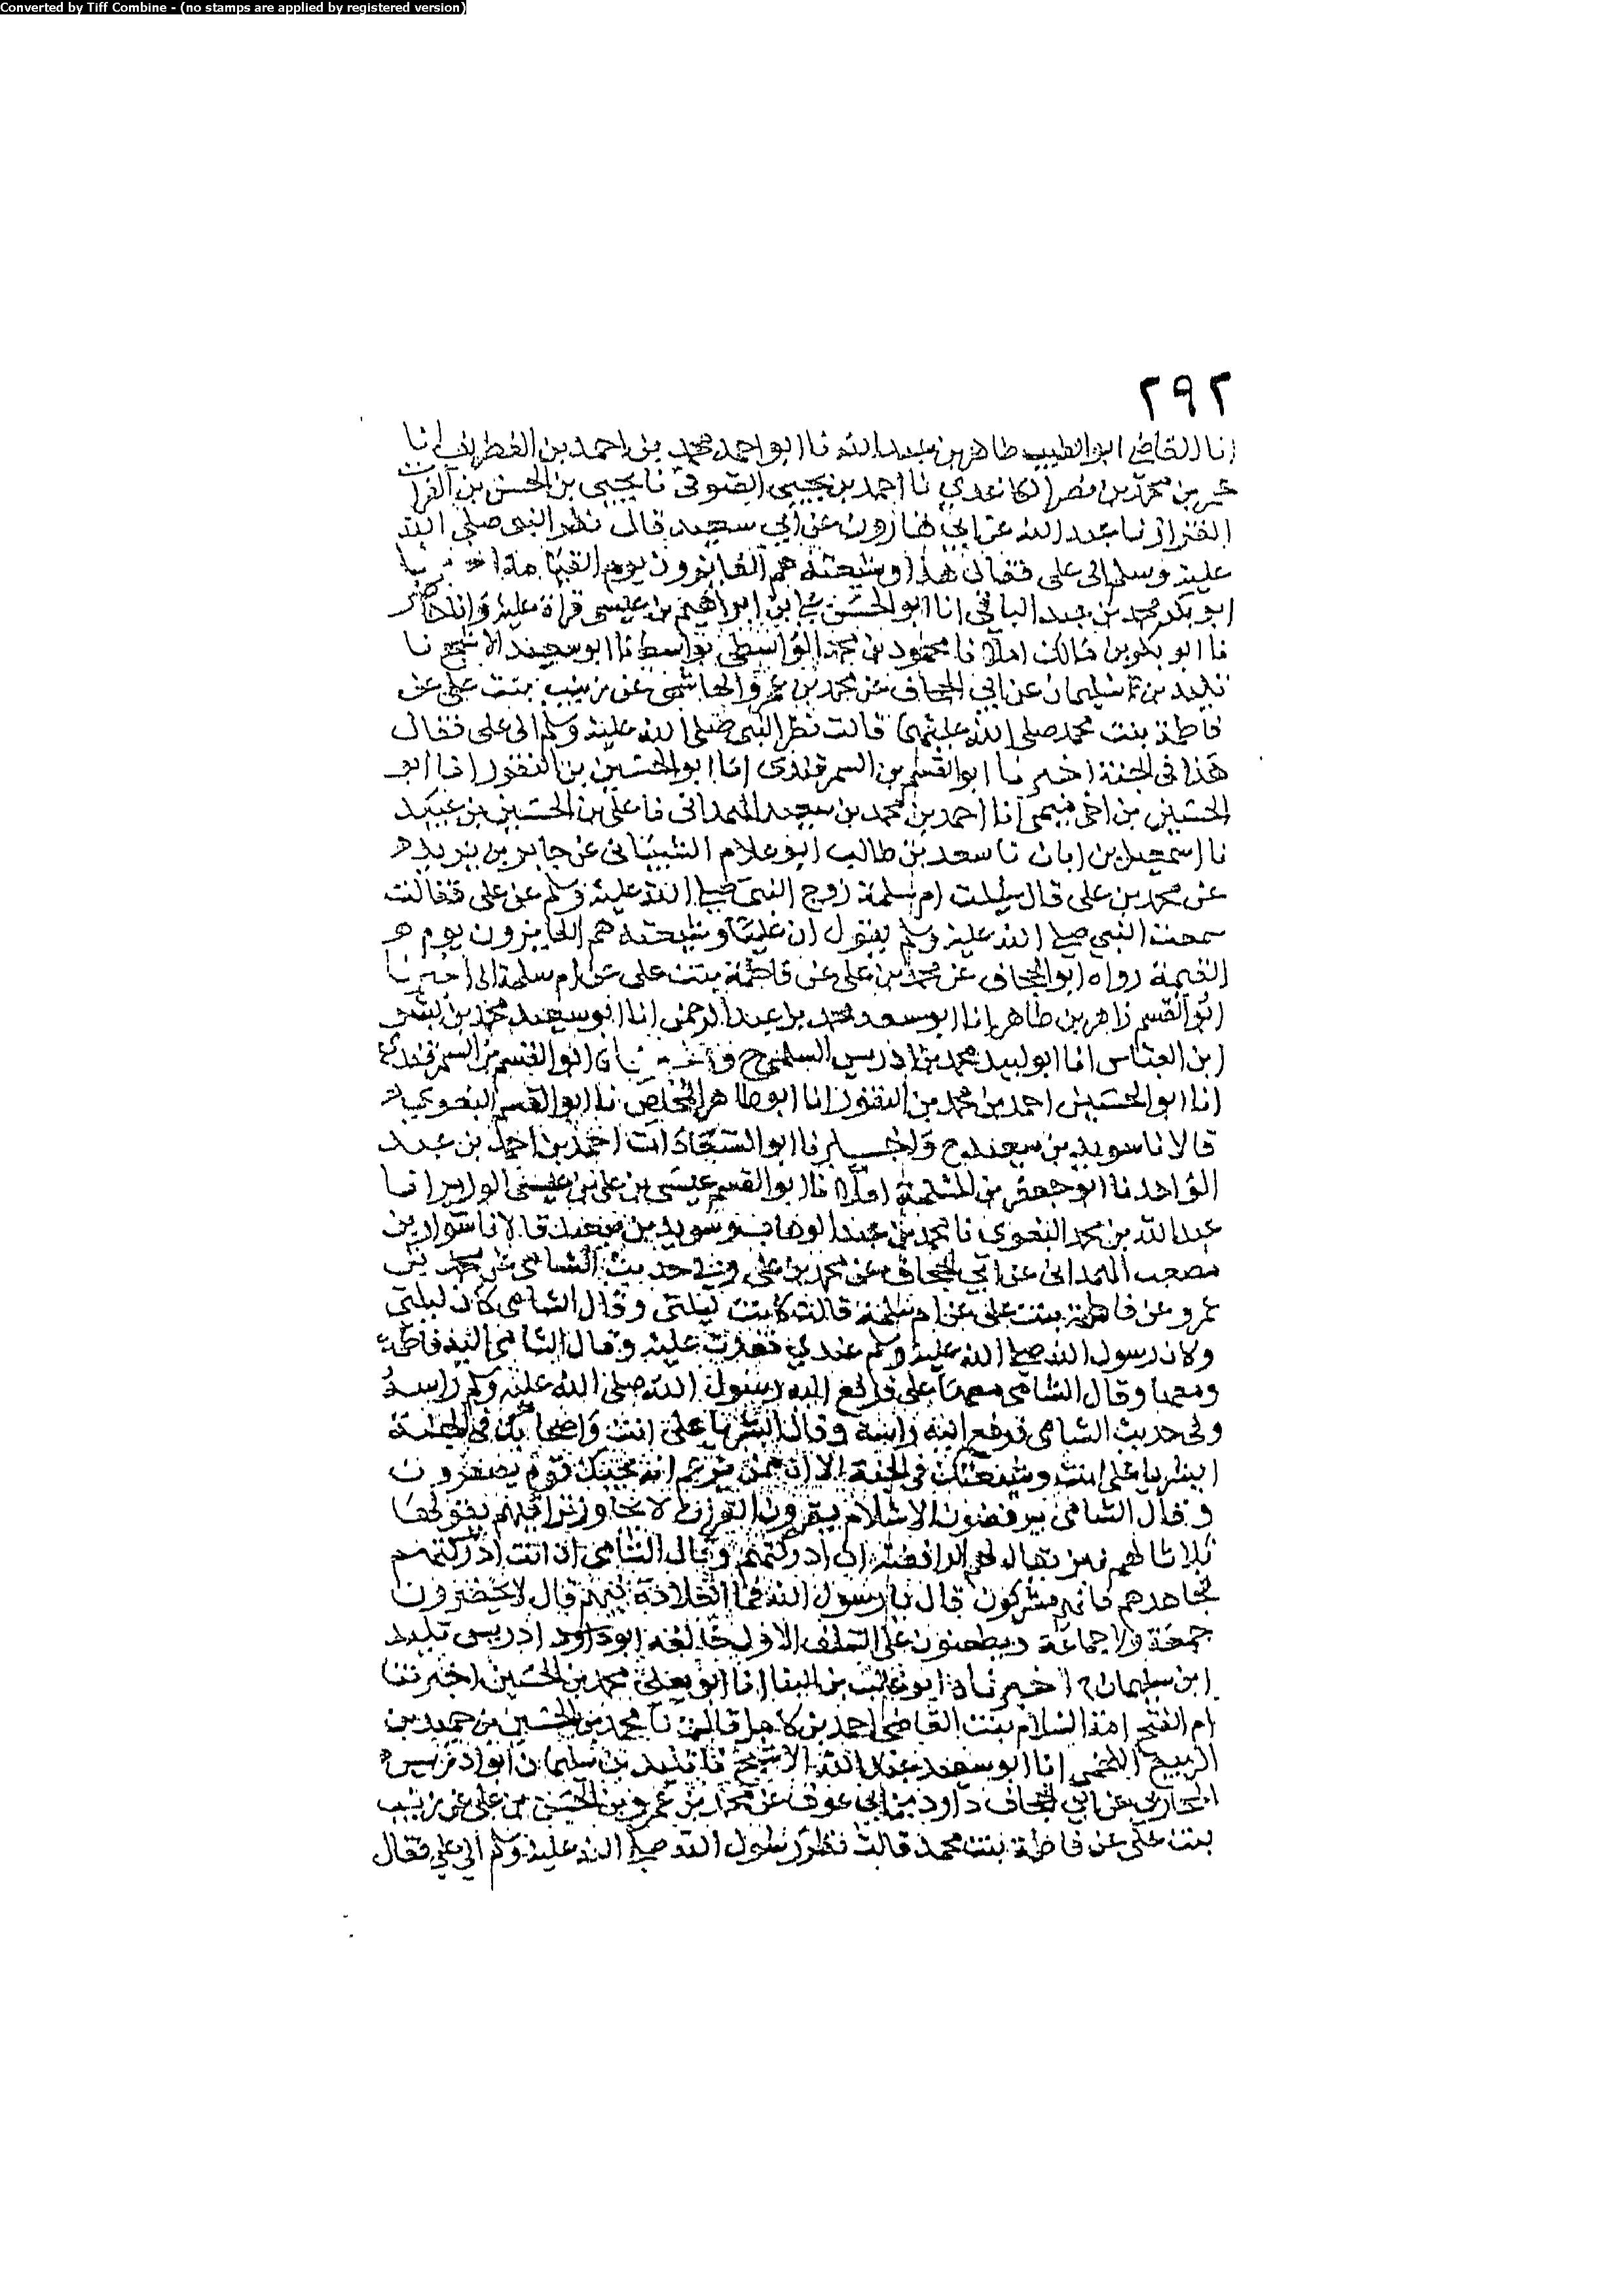 Converted by Tiff Combine - (no stamps are applied by registered version)
٢٩٢
انا القاضي ابو الطيب طاهر بن عبد الله نا ابو احمد محمد بن احمد بن الغطريف انا
بن محمد بن نصر الكاغدي نا احمد بن يحيى الصوفي نا يحيى بن الحسن بن الفرات
القزاز نا عبد الله عن ابي هارون عن ابي سعيد قال نظر النبي صلى الله
عليه وسلم الى علي فقال هذا وشيعته هم الفايزون يوم القيامة اخبرنا
ابو بكر محمد بن عبد الباقي انا ابو الحسن بن ابراهيم بن عيسى قراة عليه وانا حاضر
نا ابو بكر بن مالك املا نا محمود بن محمد الواسطي بواسط نا ابو سعيد الاشج نا
تليد بن سليمان عن ابي الجحاف عن محمد بن عمرو الهاشمي عن زينب بنت علي عن
فاطمة بنت محمد صلى الله عليهما قالت نظر النبي صلى الله عليه وسلم الى علي فقال
هذا في الجنة اخبرنا ابو القسم بن السمرقندي انا ابو الحسين بن النقور انا ابو
الحسين بن اخي ميمي انا احمد بن محمد بن سعيد الهمداني نا علي بن الحسين بن عبيد
نا اسمعيل بن ابان نا سعد بن طالب ابو علام الشيباني عن جابر بن يزيد
عن محمد بن علي قال سيلت ام سلمة زوج النبي صلى الله عليه وسلم عن علي فقالت
سمعت النبي صلى الله عليه وسلم يقول ان عليا وشيعته هم الفايزون يوم
القيمة رواه ابو الجحاف عن محمد بن علي عن فاطمة بنت علي عن ام سلمة اخبرنا
ابو القسم زاهر بن طاهر انا ابو سعد محمد بن عبد الرحمن انا ابو سعيد محمد بن بشر
ابن العباس انا ابو لبيد محمد بن ادريس السلمي ح واخبرنا ابو القسم بن السمرقندي
انا ابو الحسين احمد بن محمد بن النقور انا ابو طاهر المخلص نا ابو القسم البغوي
قالا نا سويد بن سعيد ح واخبرنا ابو السعادات احمد بن احمد بن عبد
الواحد نا ابو جعفر بن المسلمة املا نا ابو القسم عيسى بن علي بن عيسى الوزير انا
عبد الله بن محمد البغوي نا محمد بن عبد الوهاب وسويد بن سعيد قالا نا سوار بن
مصعب الهمداني عن ابي الجحاف عن محمد بن علي وفي حديث الشامي عن محمد بن
عمرو عن فاطمة بنت علي عن ام سلمة قالت كانت ليلتي وقال الشامي كان ليلتي
وكان رسول الله صلى الله عليه وسلم عندي فغدت عليه وقال الشامي اليه فاطمة
ومعها وقال الشامي معها علي فرفع اليه رسول الله صلى الله عليه وسلم راسه
وفي حديث الشامي فرفع اليه راسه وقال ابشر يا علي انت واصحابك في الجنة
ابشر يا علي انت وشيعتك في الجنة الا ان ممن يزعم انه يحبك قوم يصغرون
وقال الشامي يرفضون الاسلام يقرون القران لا يجاوز تراقيهم يقولها
ثلاثا لهم نبز يقال لهم الرافضة ان ادركتهم وقال الشامي اذا انت ادركتهم
فجاهدهم فانهم مشركون قال يا رسول الله فما العلامة فيهم قال لا يحضرون
جمعة ولا جماعة ويطعنون على السلف الاول خالفه ابو داود ادريس تليد
ابن سليمان اخبرناه ابو غالب بن البنا انا ابو يعلى محمد بن الحسين اخبرتنا
ام الفتح امة السلام بنت القاضي احمد بن كامل قالت نا محمد بن الحسين بن حميد بن
الربيع اللخمي انا ابو سعيد عبد الله الاشج نا تليد بن سليمان ابو ادريس
المحاربي عن ابي الجحاف داود بن ابي عوف عن محمد بن عمرو بن الحسن بن علي عن زينب
بنت علي عن فاطمة بنت محمد قالت نظر رسول الله صلى الله عليه وسلم الى علي فقال